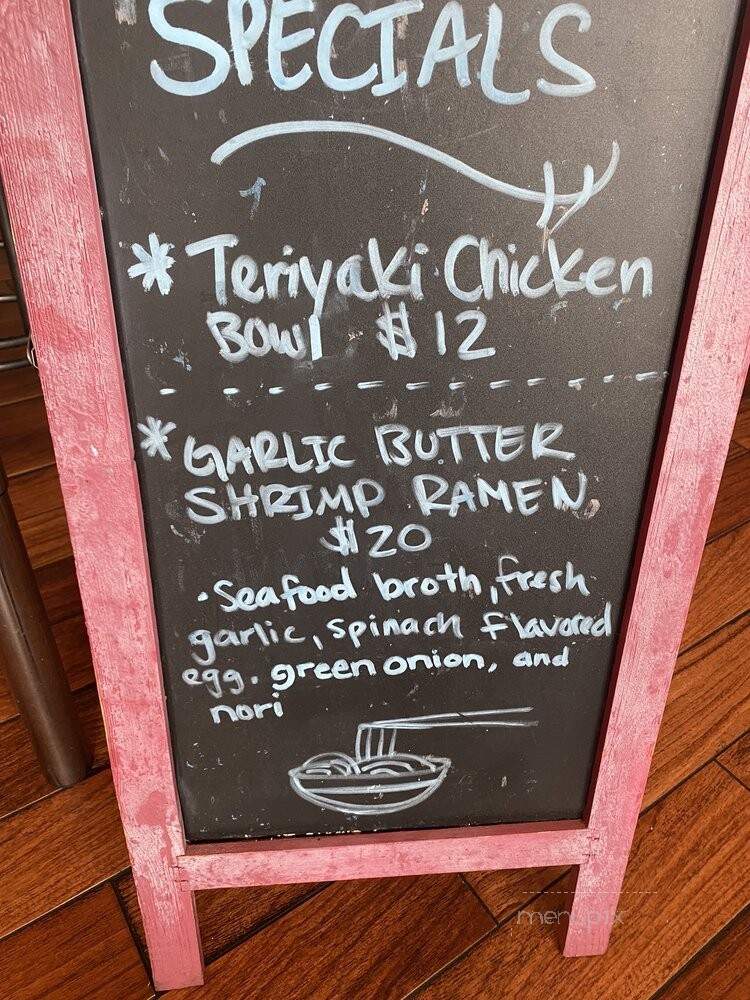 SPECIALS
* Teriyaki Chicken
Bowl $12
* GARLIC BUTTER
SHRIMP RAMEN
$20
• Seafood broth, fresh
garlic, spinach flavored
egg. green onion, and
nori
menupix